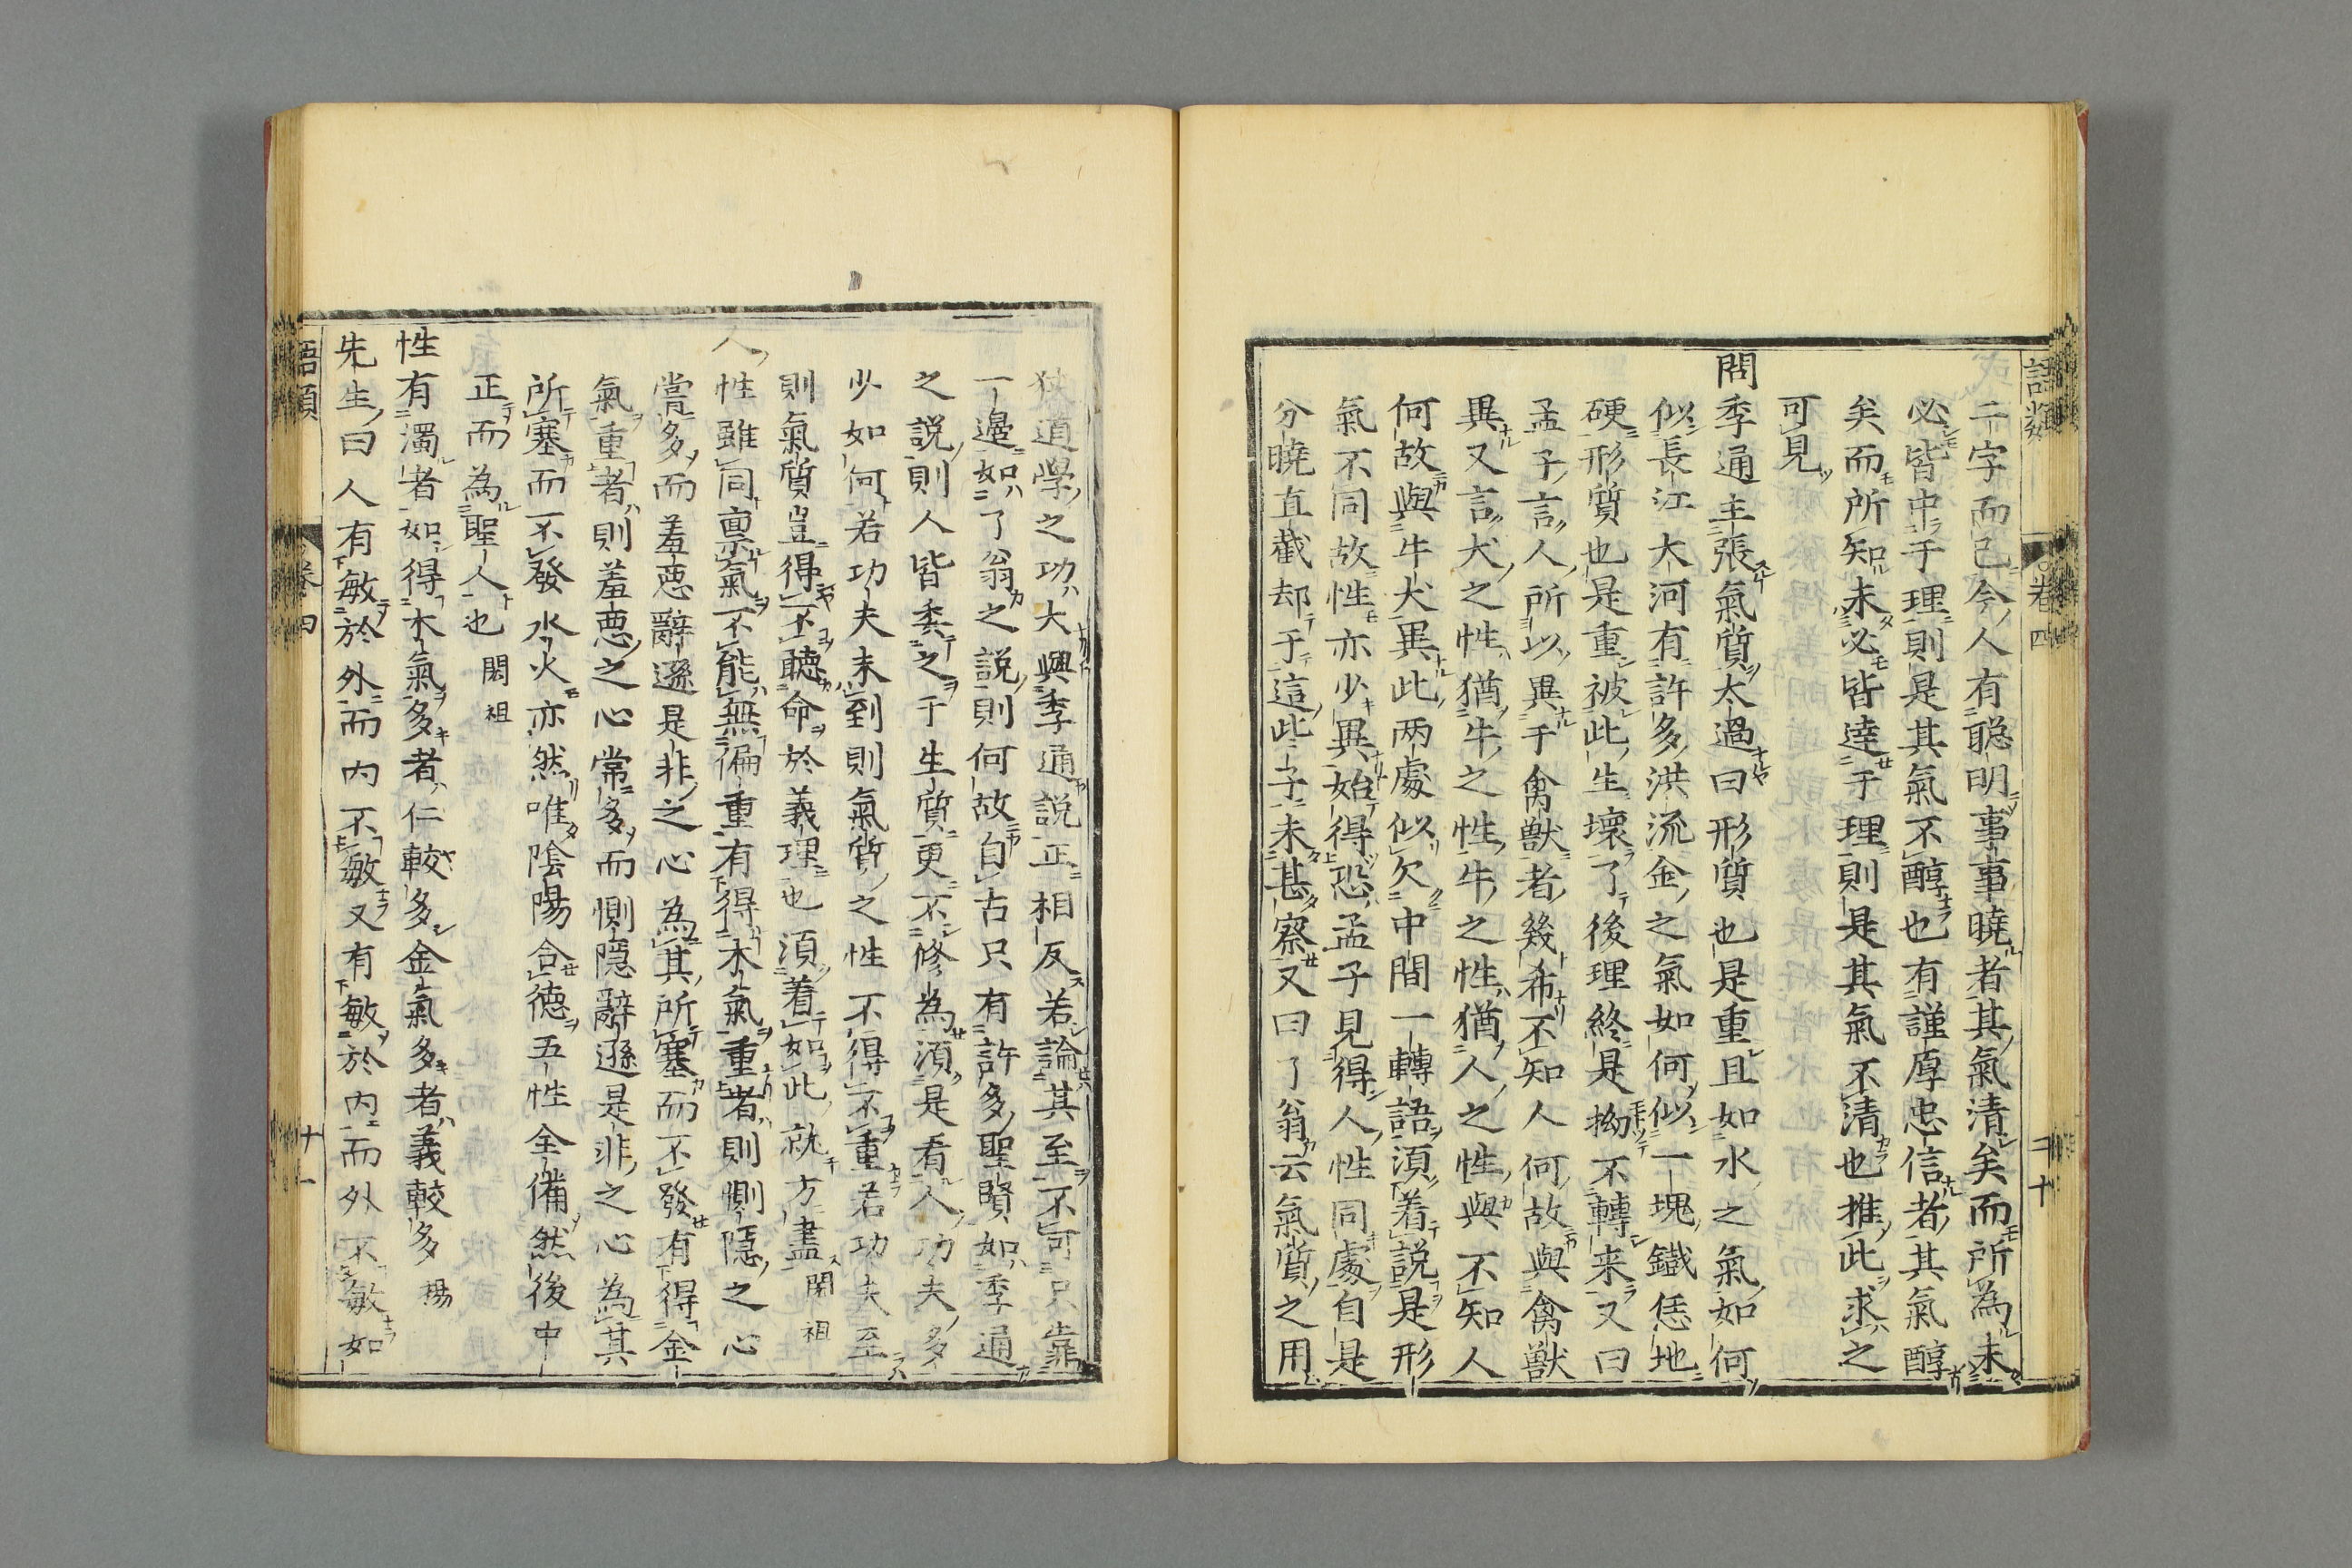 語類
卷四
二十
二字而已今人有聡明事事曉者其氣清矣而所為未
必皆中于理則是其氣不醇也有謹厚忠信者其氣醇
矣而所知未必皆達于理則是其氣不清也推此求之
可見
問季通主張氣質太過曰形質也是重且如水之氣如何
似長江大河有許多洪流金之氣如何似一塊鐵恁地
硬形質也是重被此生壞了後理終是拗不轉来又曰
孟子言人所以異于禽獸者幾希不知人何故與禽獸
異又言犬之性猶牛之性牛之性猶人之性與不知人
何故與牛犬異此两處似欠中間一轉語湏着説是形
氣不同故性亦少異始得恐孟子見得人性同處自是
分曉直截却于這些子未甚察又曰了翁云氣質之用
狹道學之功大與季通説正相反若論其至不可只靠
一邊如了翁之説則何故自古只有許多聖賢如季通
之説則人皆委之于生質更不修為湏是看人功夫多
少如何若功夫未到則氣質之性不得不重若功夫至
則氣質豈得不聴命於義理也湏着如此就方盡 閎祖
人性雖同稟氣不能無偏重有得木氣重者則惻隱之心
常多而羞惡辭遜是非之心為其所塞而不發有得金
氣重者則羞惡之心常多而惻隱辭遜是非之心為其
所塞而不發水火亦然唯陰陽合德五性全備然後中
正而為聖人也 閎祖
性有濁者如得木氣多者仁較多金氣多者義較多 楊
先生曰人有敏於外而内不敏又有敏於内而外不敏如
語類
卷四